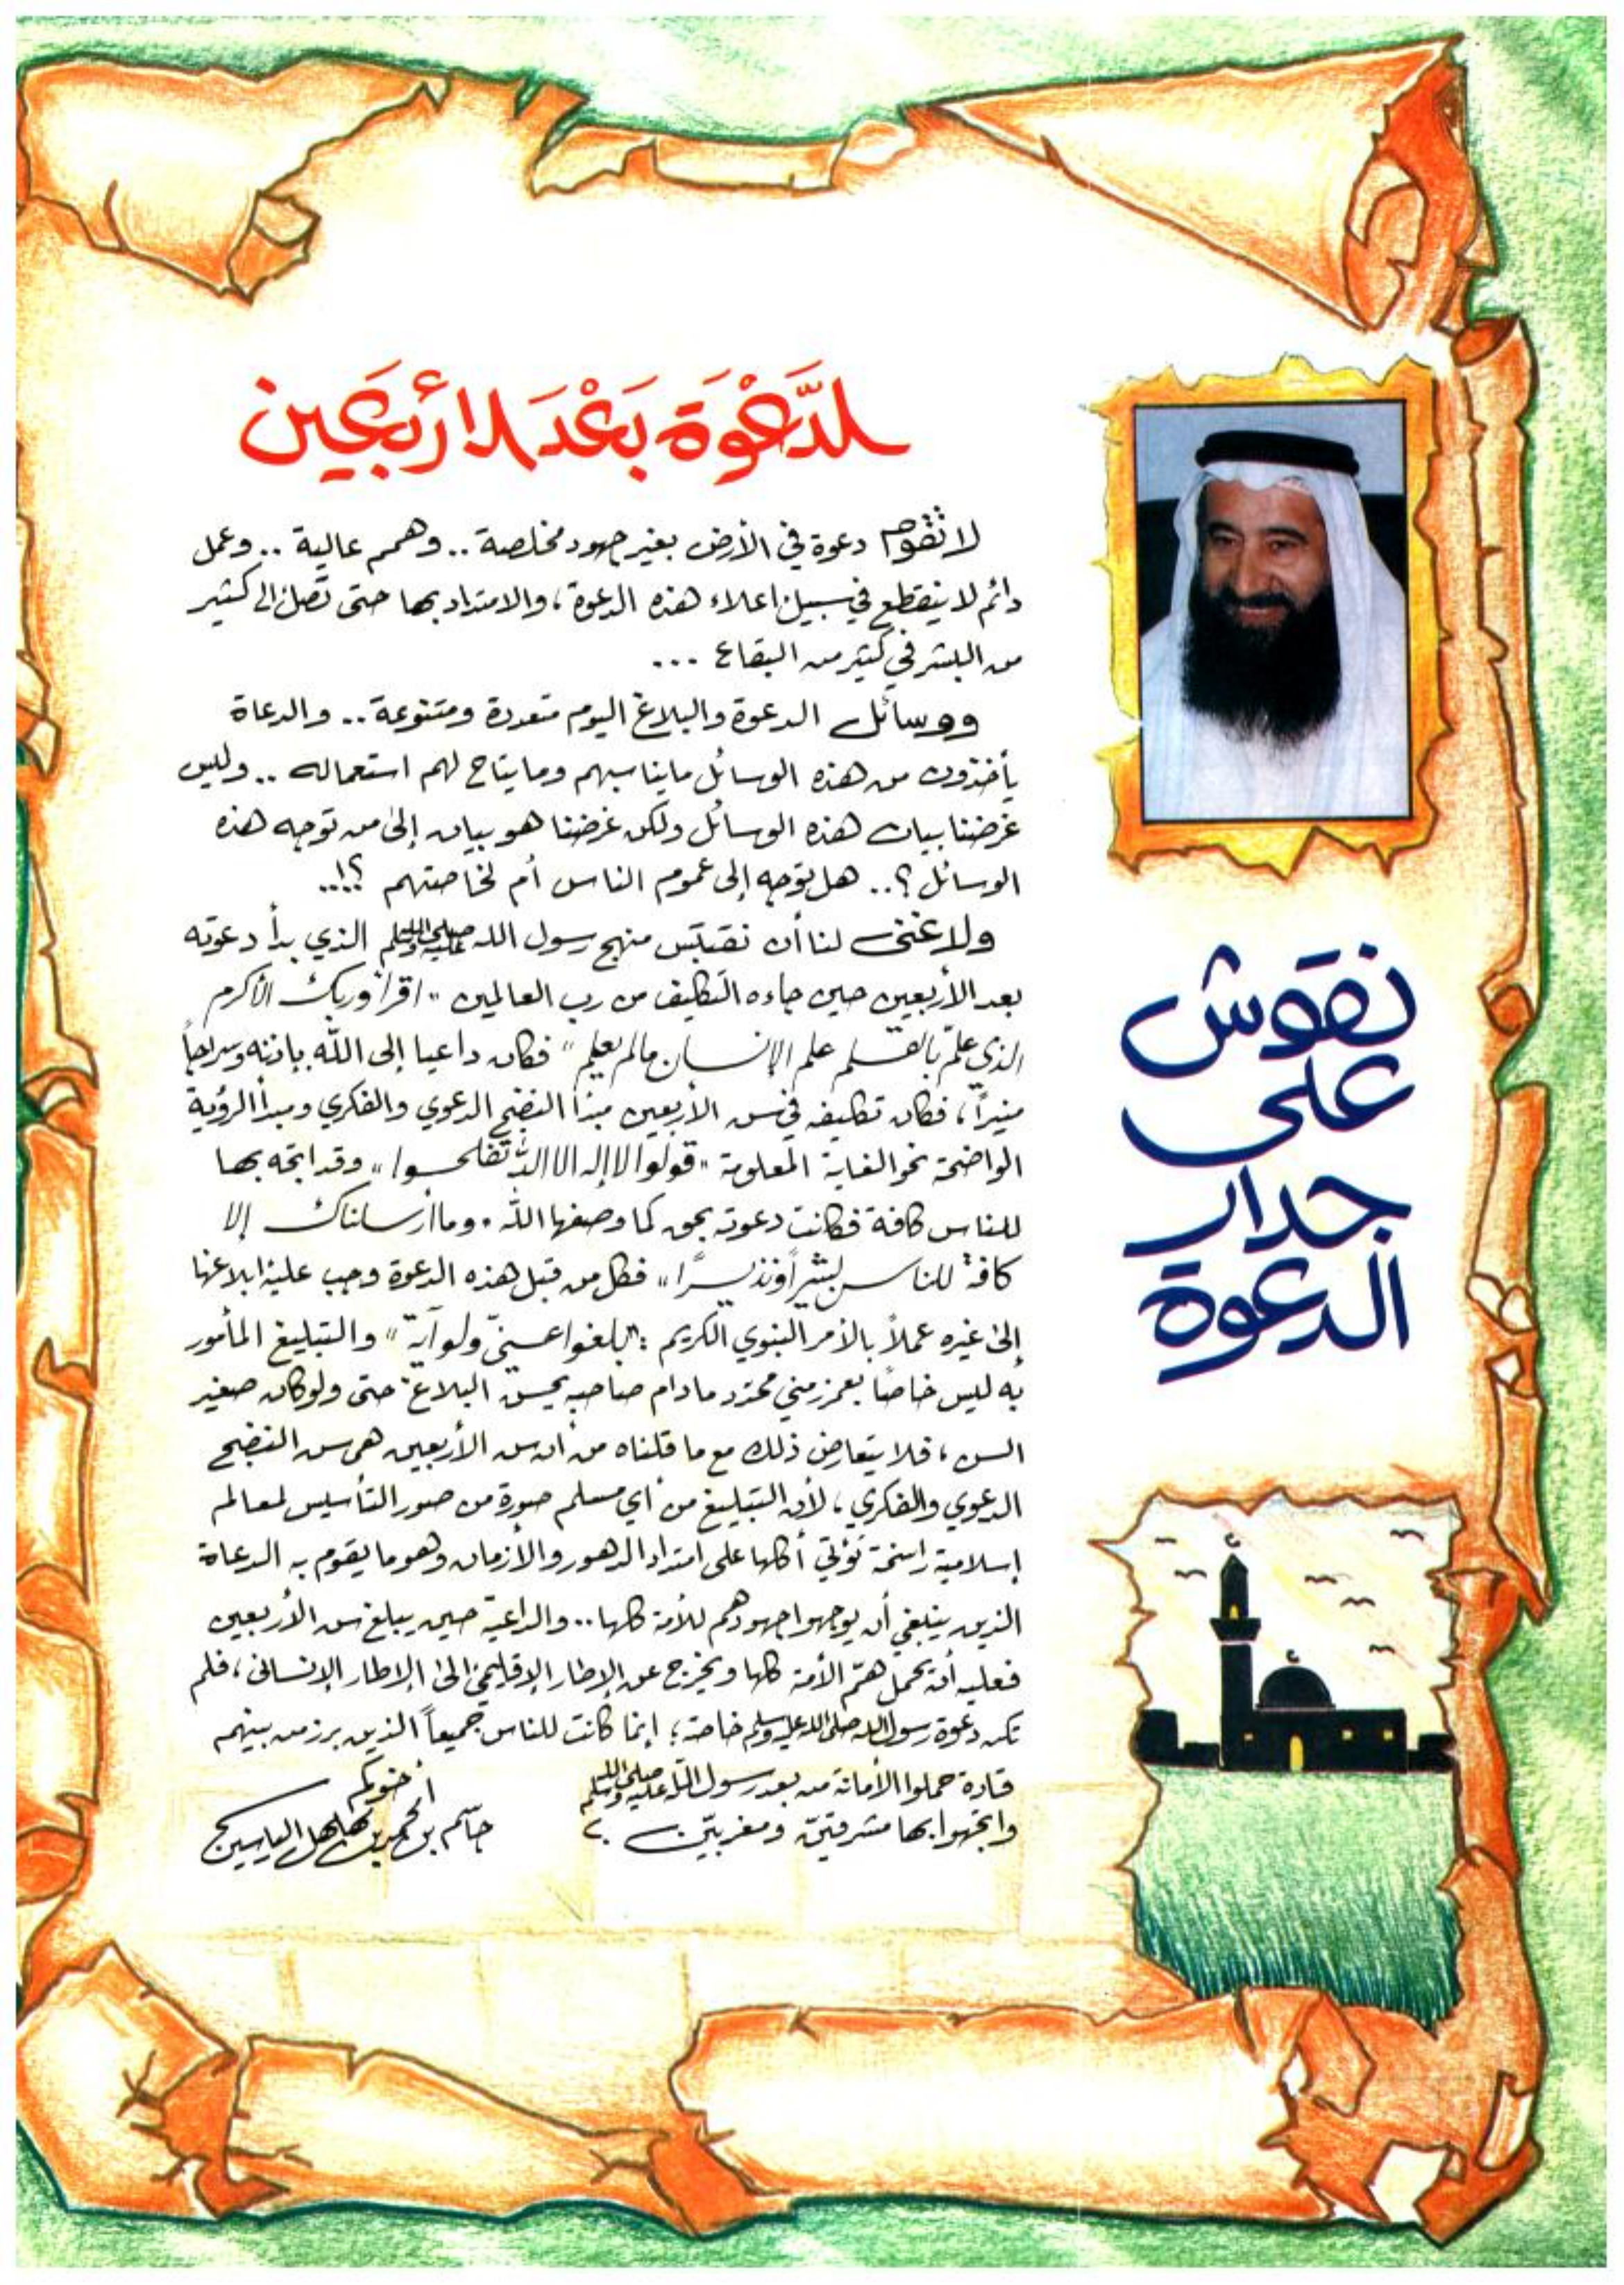 الدَّعْوَة بَعْدَ الأرْبَعِين
لا تقوم دعوة في الأرض بغير جهود مخلصة .. وهمم عالية .. وعمل
دائم لا ينقطع في سبيل اعلاء هذه الدعوة ، والامتداد بها حتى تصل إلى كثير
من البشر في كثير من البقاع ...
ووسائل الدعوة والبلاغ اليوم متعددة ومتنوعة .. والدعاة
يأخذون من هذه الوسائل مايناسبهم ومايتاح لهم استعماله .. وليس
غرضنا بيان هذه الوسائل ولكن غرضنا هو بيان إلى من توجه هذه
الوسائل ؟.. هل توجه إلى عموم الناس أم لخاصتهم ؟!..
ولا غنى لنا أن نقتبس منهج رسول الله صلى الله عليه وسلم الذي بدأ دعوته
بعد الأربعين حين جاءه التكليف من رب العالمين " اقرأ وربك الأكرم
الذي علّم بالقلم علم الإنسان مالم يعلم " فكان داعيا إلى الله بإذنه وسراجاً
منيراً ، فكان تكليفه في سن الأربعين مبدأ النضج الدعوي والفكري ومبدأ الرؤية
الواضحة نحو الغاية المعلومة " قولوا لا إله الا الله تفلحوا " وقد اتجه بها
للناس كافة فكانت دعوته بحق كما وصفها الله " وما أرسلناك إلا
كافة للناس بشيراً ونذيراً " فكل من قبل هذه الدعوة وجب عليه إبلاغها
إلى غيره عملاً بالأمر النبوي الكريم : "بلغوا عني ولو آية " والتبليغ المأمور
به ليس خاصاً بعمر زمني محدد مادام صاحبه يحسن البلاغ حتى ولو كان صغير
السن ، فلا يتعارض ذلك مع ما قلناه من أن سن الأربعين هي سن النضج
الدعوي والفكري ، لأن التبليغ من أي مسلم صورة من صور التأسيس لمعالم
إسلامية راسخة تؤتي أكلها على امتداد الدهور والأزمان وهو ما يقوم به الدعاة
الذين ينبغي أن يوجهوا جهودهم للأمة كلها .. والداعية حين يبلغ سن الأربعين
فعليه أن يحمل همّ الأمة كلها ويخرج عن الإطار الإقليمي إلى الإطار الإنساني ، فلم
تكن دعوة رسول الله صلى الله عليه وسلم خاصة ؛ إنما كانت للناس جميعاً الذين برز من بينهم
قادة حملوا الأمانة من بعد رسول الله صلى الله عليه وسلم
واتجهوا بها مشرقين ومغربين .
أخوكم
جاسم بن محمد بن مهلهل الياسين
نقوش
على
جدار
الدعوة